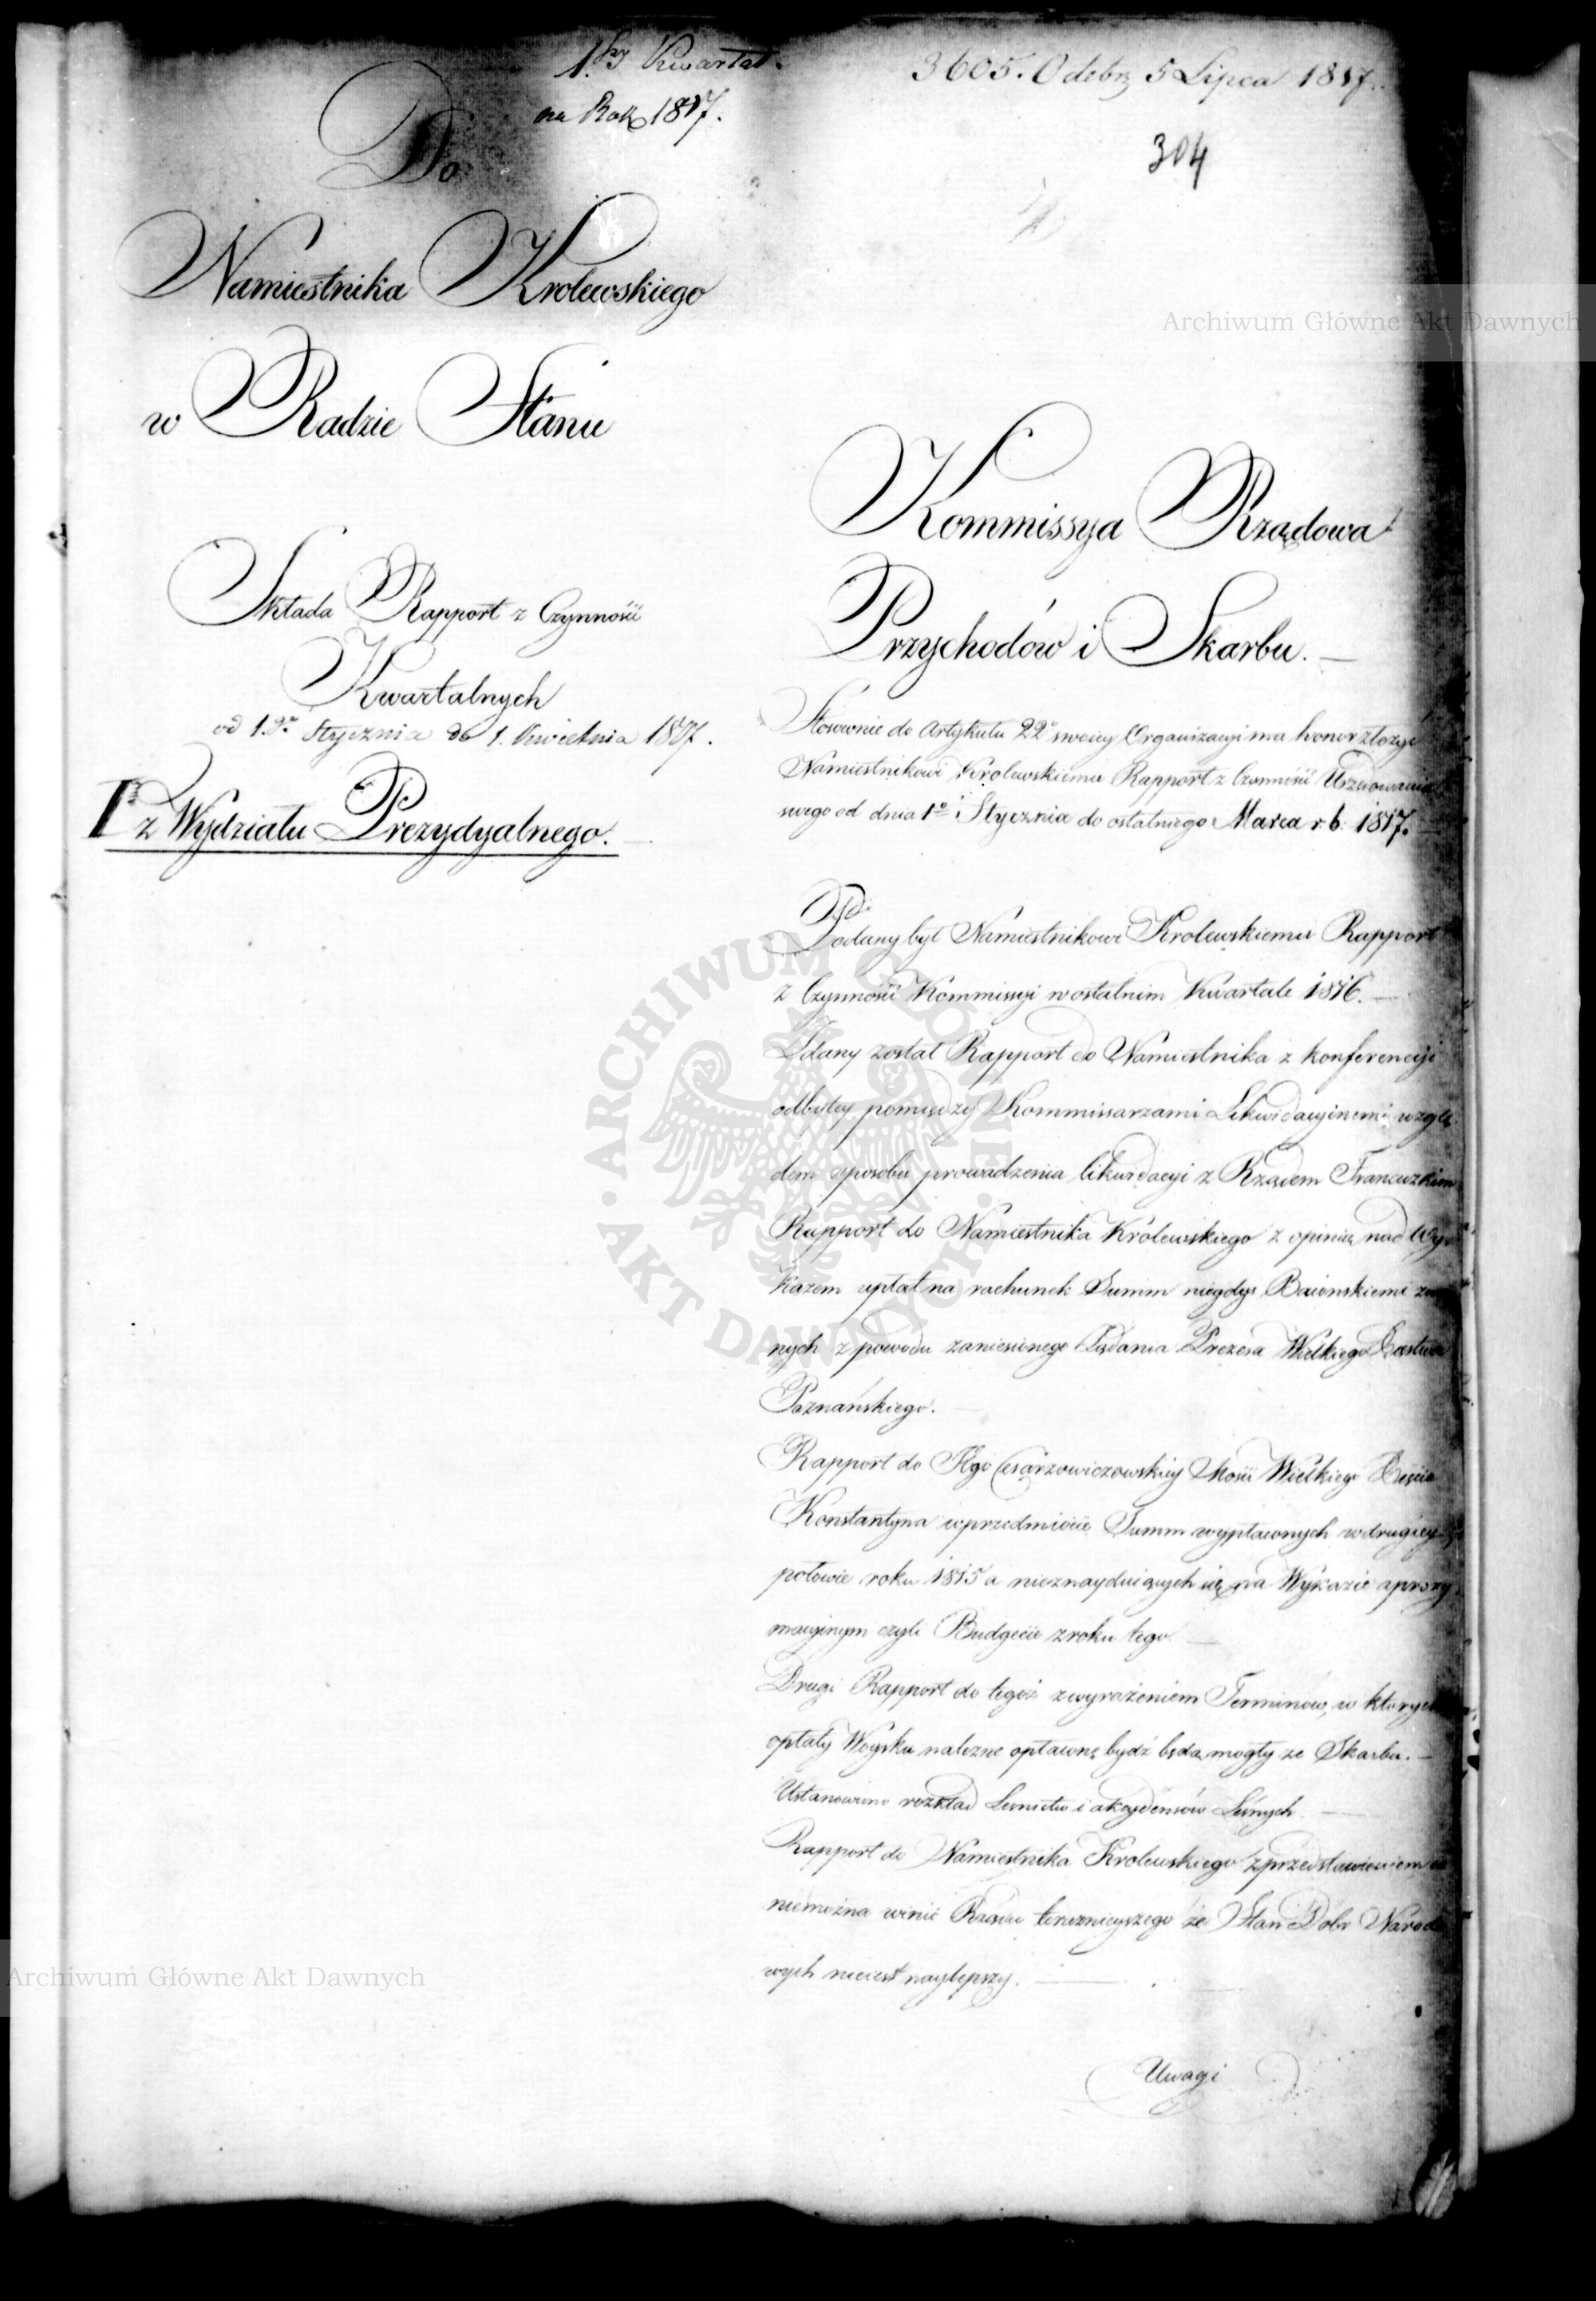 1.szy Kwartał.
na Rok 1817.
3605. Odebr 5 Lipca 1817.
304
Do
Namiestnika Krolewskiego
w Radzie Stanu
Składa Rapport z Czynności
Kwartalnych
od 1.go Stycznia do 1. Kwietnia 1817.
I z Wydziału Prezydyalnego.
Kommissya Rządowa
Przychodów i Skarbu.
Stosownie do Artykułu 22o swoiey Organizacyi ma honor złożyć
Namiestnikowi Krolewskiemu Rapport z Czynności Urzędowania
swego od dnia 1o Stycznia do ostatniego Marca r. b. 1817.
Podany był Namiestnikowi Krolewskiemu Rapport
z Czynności Kommissyi w ostatnim Kwartale 1816.
Zdany został Rapport do Namiestnika z konferencyi
odbytey pomiędzy Kommissarzami Likwidacyinemi wzglę
dem sposobu prowadzenia likwidacyi z Rządem Francuzkim
Rapport do Namiestnika Królewskiego z opinią nad Wy
kazem upłat na rachunek Summ niegdyś Baionskiemi zwa
nych z powodu zaniesionego Żądania Prezesa Wielkiego Xięstwa
Poznańskiego.
Rapport do Jego Cesarzowiczowskiey Mości Wielkiego Xięcia
Konstantyna w przedmiocie Summ wypłaconych w drugiey
połowie roku 1815 a nieznayduiących się na Wykazie aproxy
macyinym czyli Budgecie z roku tego.
Drugi Rapport do tegoż z wyrażeniem Terminów, w których
opłaty Woysku należne opłacone bydź będą mogły ze Skarbu.
Ustanowiono rozkład Leśnictw i akcydensów Leśnych.
Rapport do Namiestnika Krolewskiego z przedstawieniem że
niemożna winić Rządu teraznieyszego że Stan Dobr Narodo
wych nieiest naylepszy.
Uwagi
Archiwum Główne Akt Dawnych
Archiwum Główne Akt Dawnych
ARCHIWUM GŁÓWNE AKT DAWNYCH